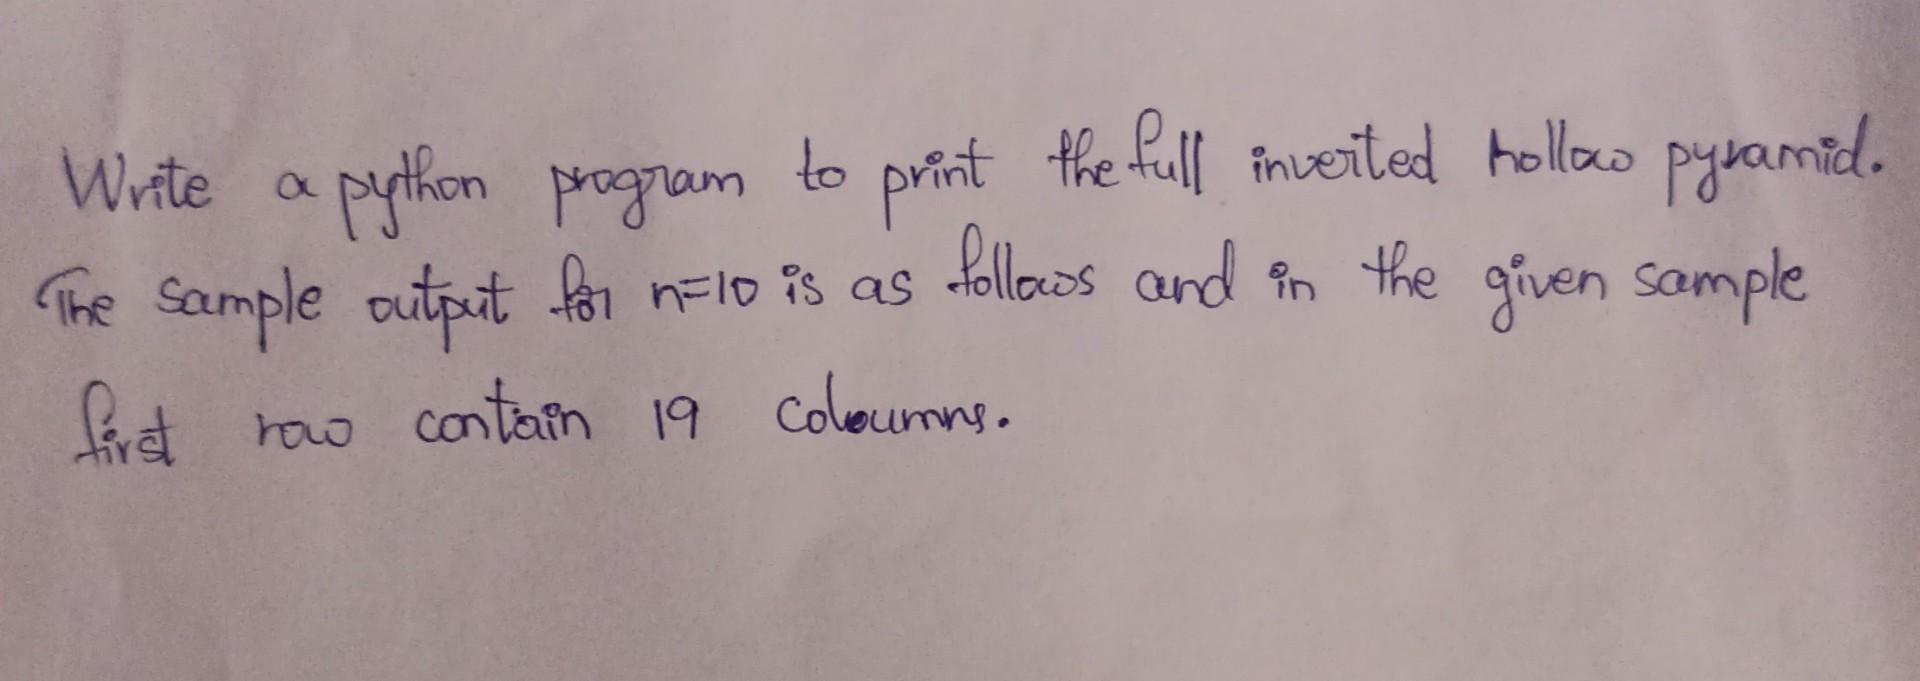 Write a python program to print the full inverted hollow pyramid.
The sample output for n=10 is as follows and in the given sample
first row contain 19 coloumns.